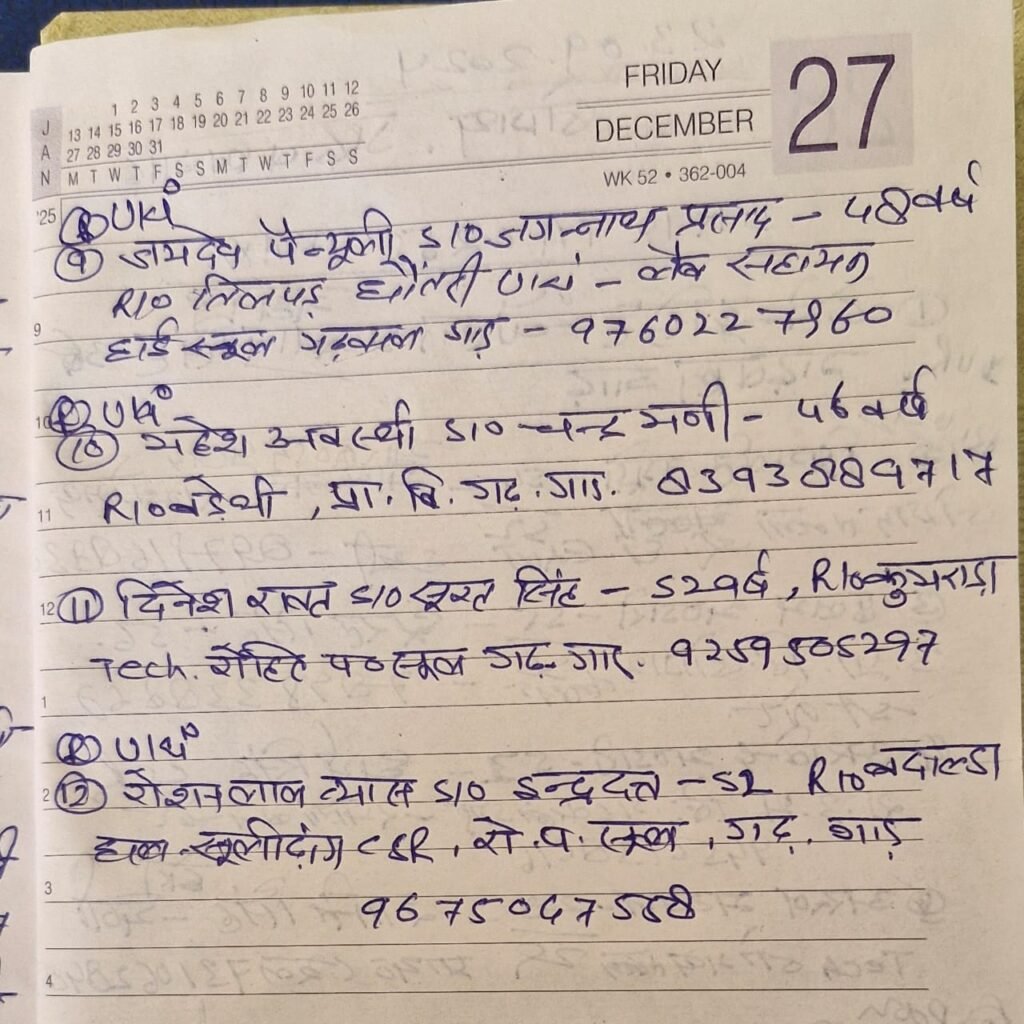 J A N
1 2 3 4 5 6 7 8 9 10 11 12
13 14 15 16 17 18 19 20 21 22 23 24 25 26
27 28 29 30 31
M T W T F S S M T W T F S S
'25
FRIDAY
DECEMBER
27
WK 52 • 362-004
⑨ जयदेव पैन्यूली S/O जगन्नाथ प्रसाद - 48 वर्ष
R/O तिलपड़ धौंतरी - लैब सहायक
9
हाई स्कूल गढ़वाल गाड़ - 9760227960
10
⑩ महेश अवस्थी S/O चन्द्र मणी - 46 वर्ष
R/O बड़ेथी, प्रा. वि. गढ़. गाड़. 8393889717
11
12 ⑪ दिनेश रावत S/O सूरत सिंह - 52 वर्ष, R/O कुमराड़ा
Tech. रोहित प० स्कूल गढ़. गाड़. 9259505297
1
2 ⑫ रोशन लाल व्यास S/O इन्द्रदत्त - 52 R/O बदाल्डा
हाल. CSR, रो. प. स्कूल, गढ़. गाड़
3
9675047588
4